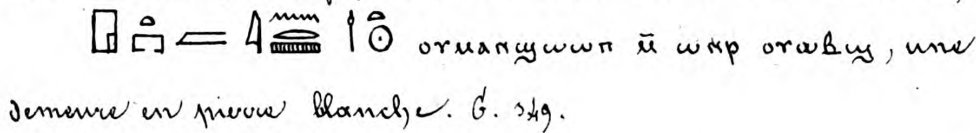 ⲟⲩⲙⲁⲛϣⲱⲱⲡ ⲙ̄ ⲱⲛⲣ ⲟⲩⲱⲃϣ, une
demeure en pierre blanche. G. 349.